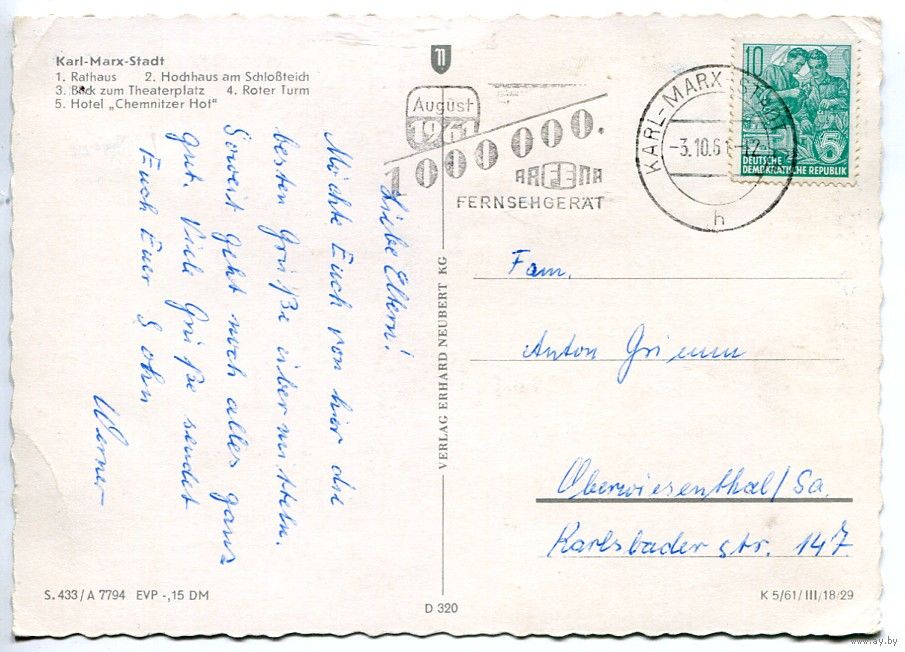 Karl-Marx-Stadt
1. Rathaus 2. Hochhaus am Schloßteich
3. Blick zum Theaterplatz 4. Roter Turm
5. Hotel „Chemnitzer Hof"
Liebe Eltern!
Möchte Euch von hier die
besten Grüße übermitteln.
Soweit geht noch alles ganz
gut. Viele Grüße sendet
Euch Euer Sohn
Werner
S. 433/A 7794 EVP -,15 DM
VERLAG ERHARD NEUBERT KG
D 320
August
1961
1000 000.
FERNSEHGERÄT
KARL-MARX-STADT
-3.10.61-12
h
10
5
DEUTSCHE
DEMOKRATISCHE REPUBLIK
Fam.
Anton Grimm
Oberwiesenthal/Sa.
Karlsbader str. 147
K 5/61/III/18/29
www.ay.by